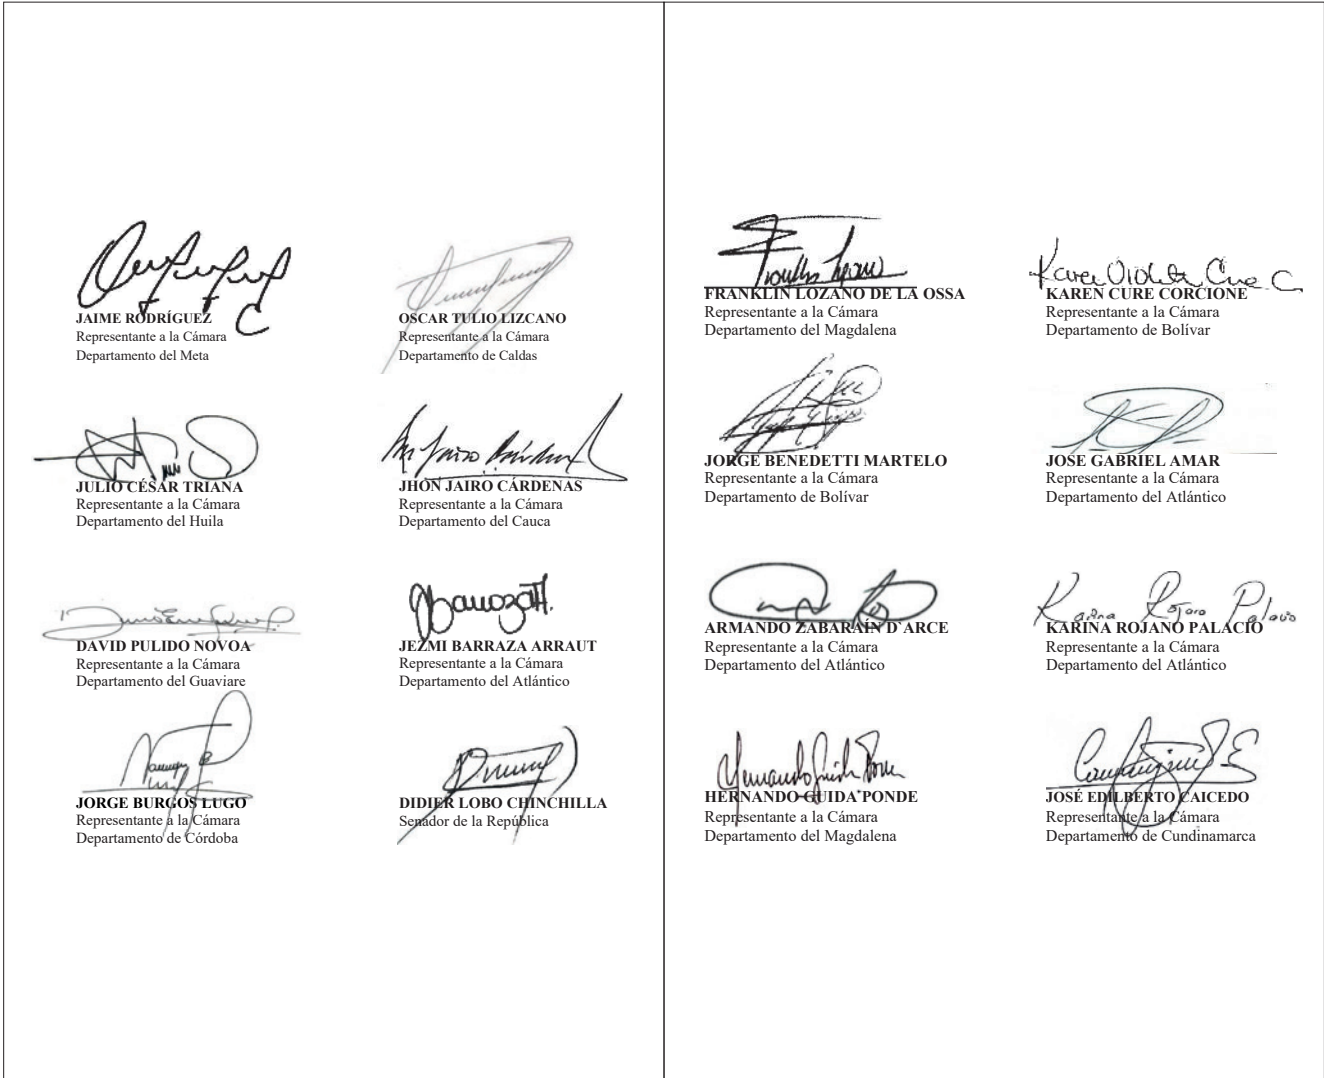 JAIME RODRÍGUEZ
Representante a la Cámara
Departamento del Meta
OSCAR TULIO LIZCANO
Representante a la Cámara
Departamento de Caldas
JULIO CÉSAR TRIANA
Representante a la Cámara
Departamento del Huila
JHON JAIRO CÁRDENAS
Representante a la Cámara
Departamento del Cauca
DAVID PULIDO NOVOA
Representante a la Cámara
Departamento del Guaviare
JEZMI BARRAZA ARRAUT
Representante a la Cámara
Departamento del Atlántico
JORGE BURGOS LUGO
Representante a la Cámara
Departamento de Córdoba
DIDIER LOBO CHINCHILLA
Senador de la República
FRANKLIN LOZANO DE LA OSSA
Representante a la Cámara
Departamento del Magdalena
Karen Violeta Cure C
KAREN CURE CORCIONE
Representante a la Cámara
Departamento de Bolívar
JORGE BENEDETTI MARTELO
Representante a la Cámara
Departamento de Bolívar
JOSE GABRIEL AMAR
Representante a la Cámara
Departamento del Atlántico
ARMANDO ZABARAÍN D`ARCE
Representante a la Cámara
Departamento del Atlántico
Karina Rojano Palacio
KARINA ROJANO PALACIO
Representante a la Cámara
Departamento del Atlántico
HERNANDO GUIDA PONDE
Representante a la Cámara
Departamento del Magdalena
JOSÉ EDILBERTO CAICEDO
Representante a la Cámara
Departamento de Cundinamarca